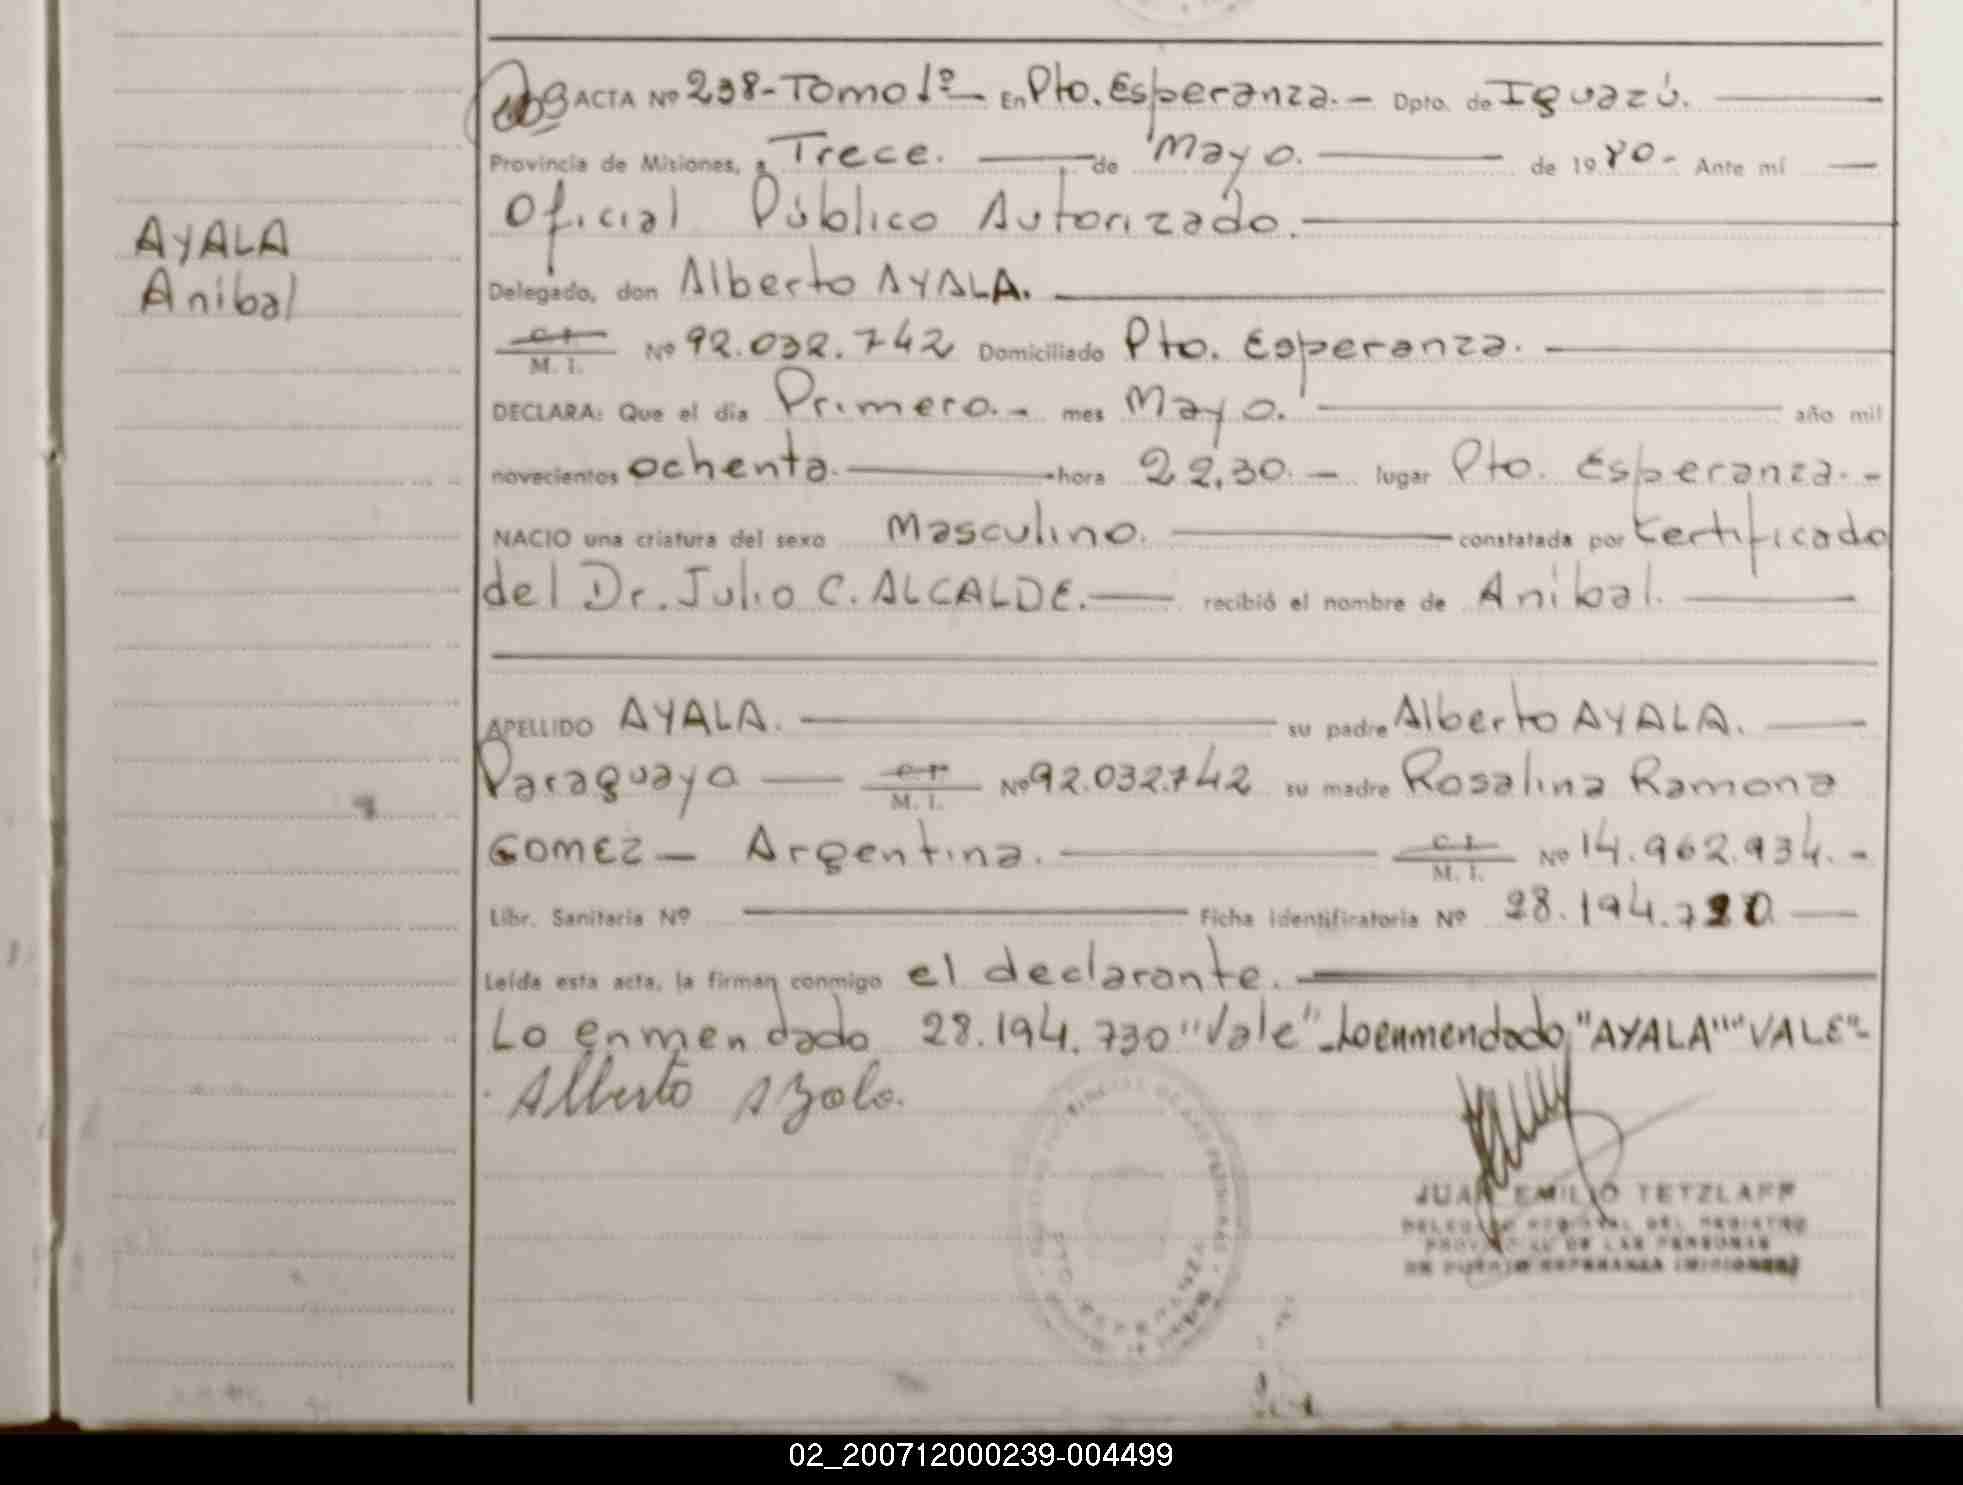 ACTA Nº 238-Tomo 1º- En Pto. Esperanza.- Dpto. de Iguazú.
Provincia de Misiones, a Trece. de Mayo. de 1980- Ante mí
Oficial Público Autorizado.
AYALA
Anibal
Delegado, don Alberto AYALA.
C.I. M. I. Nº 92.032.742 Domiciliado Pto. Esperanza.
DECLARA: Que el día Primero.- mes Mayo. año mil
novecientos ochenta. hora 22,30.- lugar Pto. Esperanza.-
NACIO una criatura del sexo Masculino. constatada por Certificado
del Dr. Julio C. ALCALDE. recibió el nombre de Anibal.
APELLIDO AYALA. su padre Alberto AYALA.
Paraguayo C.I. M. I. Nº 92.032.742 su madre Rosalina Ramona
GOMEZ- Argentina. C.I. M. I. Nº 14.962.934.-
Libr. Sanitaria Nº Ficha identificatoria Nº 28.194.730
Leída esta acta, la firman conmigo el declarante.
Lo enmendado 28.194.730 "Vale"- Lo enmendado "AYALA" "VALE"-
Alberto Ayala.
JUAN EMILIO TETZLAFF
DELEGADO REGIONAL DEL REGISTRO
PROVINCIAL DE LAS PERSONAS
DE PUERTO ESPERANZA (MISIONES)
02_200712000239-004499